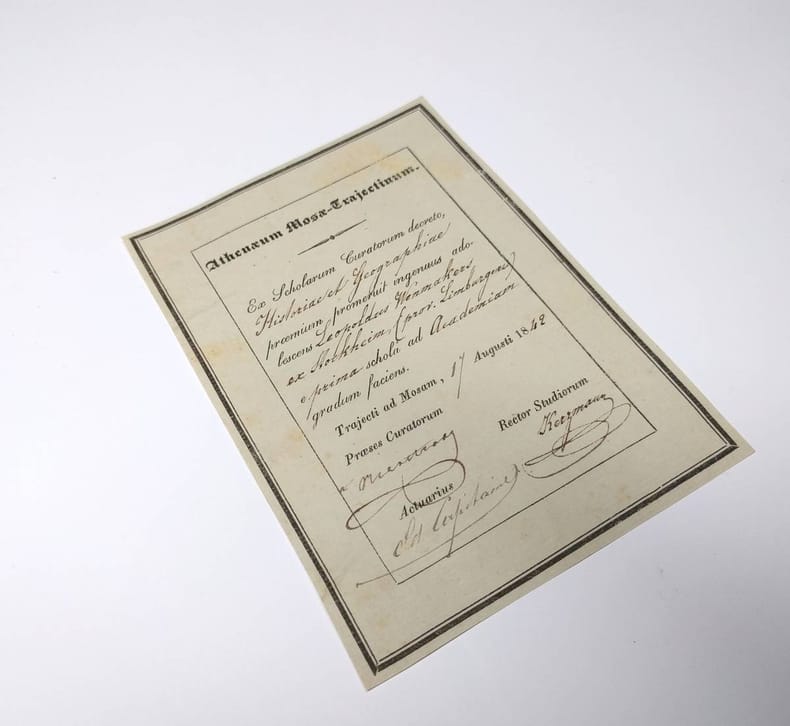 Athenæum Mosæ-Trajectinum.
Ex Scholarum Curatorum decreto,
Historiae et Geographiae
præmium promeruit ingenuus ado-
lescens Leopoldus
ex Stockheim, (prov. Limburgensi)
e prima scholâ ad Academiam
gradum faciens.
Trajecti ad Mosam, 17 Augusti 1842
Præses Curatorum
Rector Studiorum
Kerzmann
Actuarius